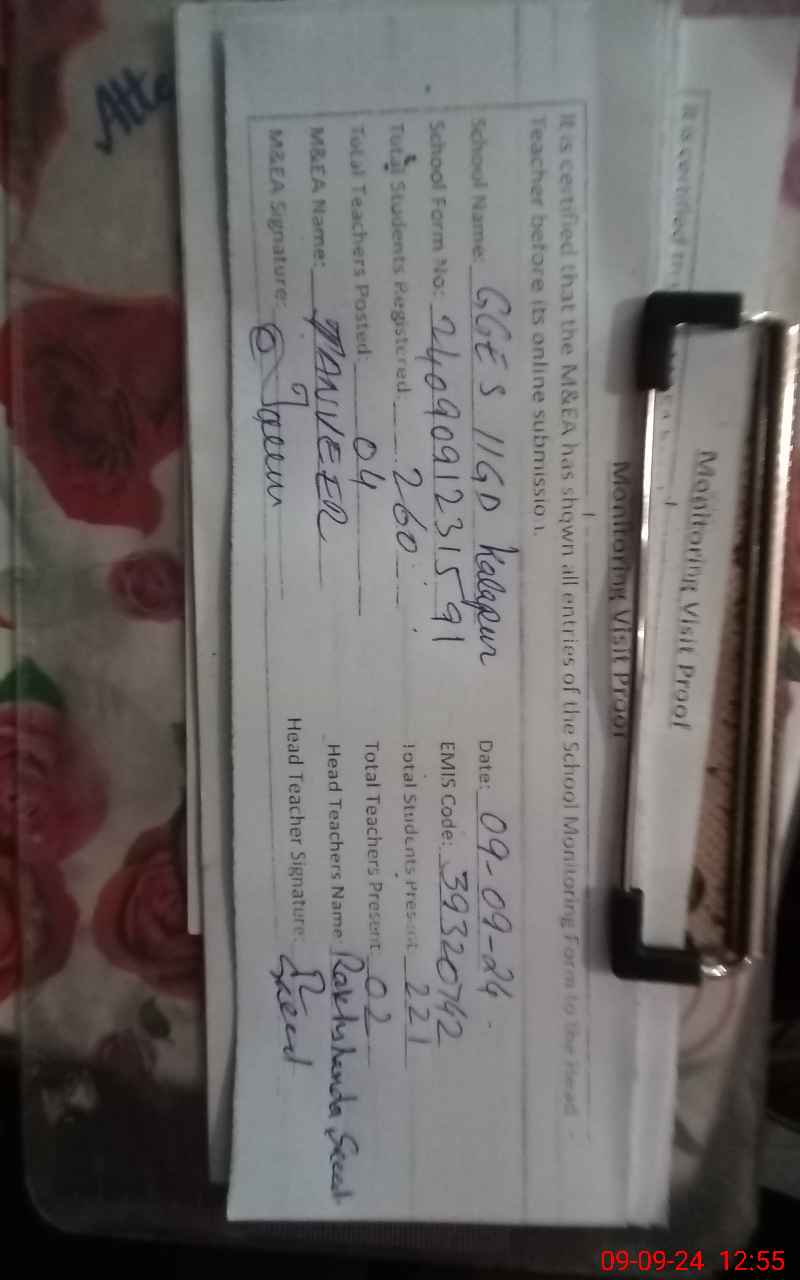 Monitoring Visit Proof
It is certified
Monitoring Visit Proof
It is certified that the M&EA has shown all entries of the School Monitoring Form to the Head
Teacher before its online submission.
School Name: GGES 11GD Kalepur Date: 09-09-24
School Form No: 24090912331591 EMIS Code: 39320742
Total Students Registered: 260 Total Students Present 221
Total Teachers Posted: 04 Total Teachers Present: 02
M&EA Name: TANVEER Head Teachers Name: Rakhshenda Saeed
M&EA Signature: Head Teacher Signature: Saeed
Atte
09-09-24 12:55